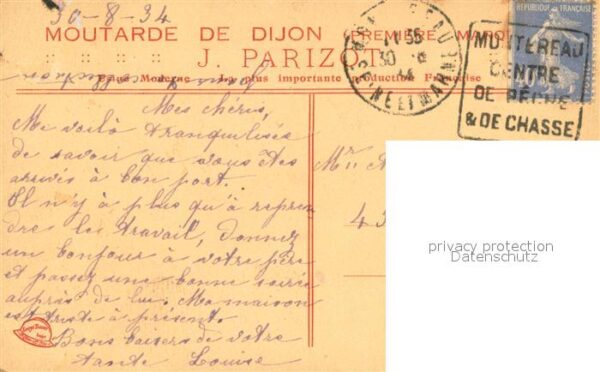 30-8-34
MOUTARDE DE DIJON (PREMIÈRE MARQUE
J. PARIZOT
Usine Moderne - La plus importante production Française
RÉPUBLIQUE FRANÇAISE
MONTEREAU
SEINE ET MARNE
30
34
MONTEREAU
CENTRE
DE PÊCHE
& DE CHASSE
Mes chéris,
Me voilà tranquilisée
de savoir que vous êtes
arrivés à bon port.
Il n'y à plus qu'à repren
dre le travail, donnez
un bonjour à votre père
et passez une bonne soirée
auprès de lui. Ma maison
est triste à présent.
Bons baisers de votre
tante Louise
43
privacy protection
Datenschutz